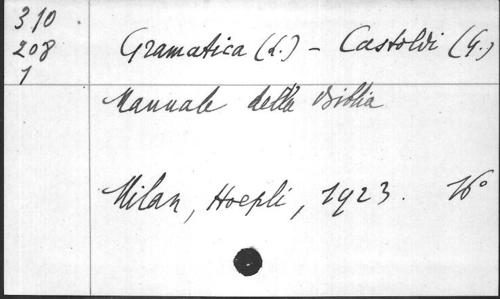 310
208
1
Gramatica (L.) - Castoldi (G.)
Manuale della Biblia
Milan, Hoepli, 1923. 16°